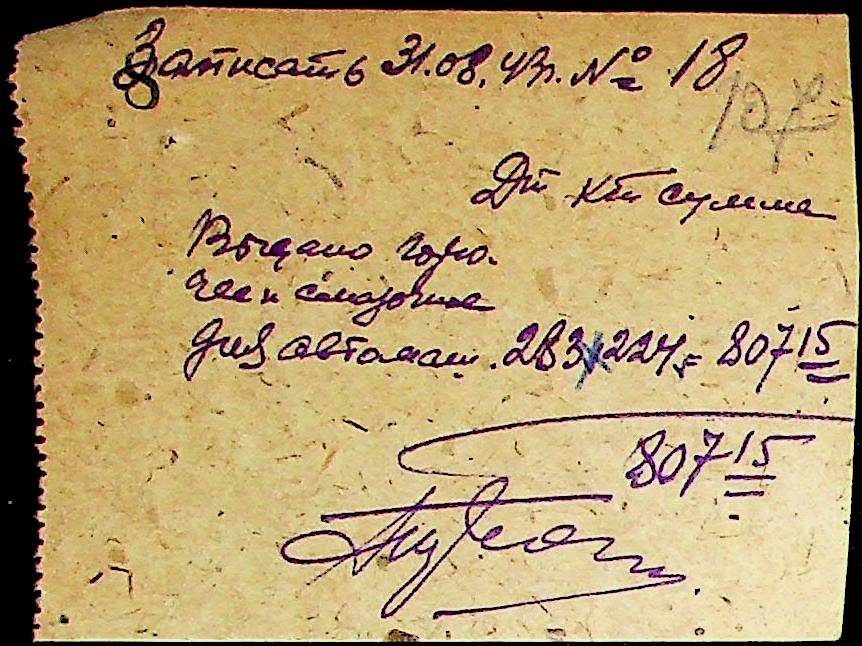 Записать 31.08.43г. № 18
107
Дт Кт сумма
Выдано горю-
чее и смазочное
для автомаш. 283 x 224 = 807 15
807 15